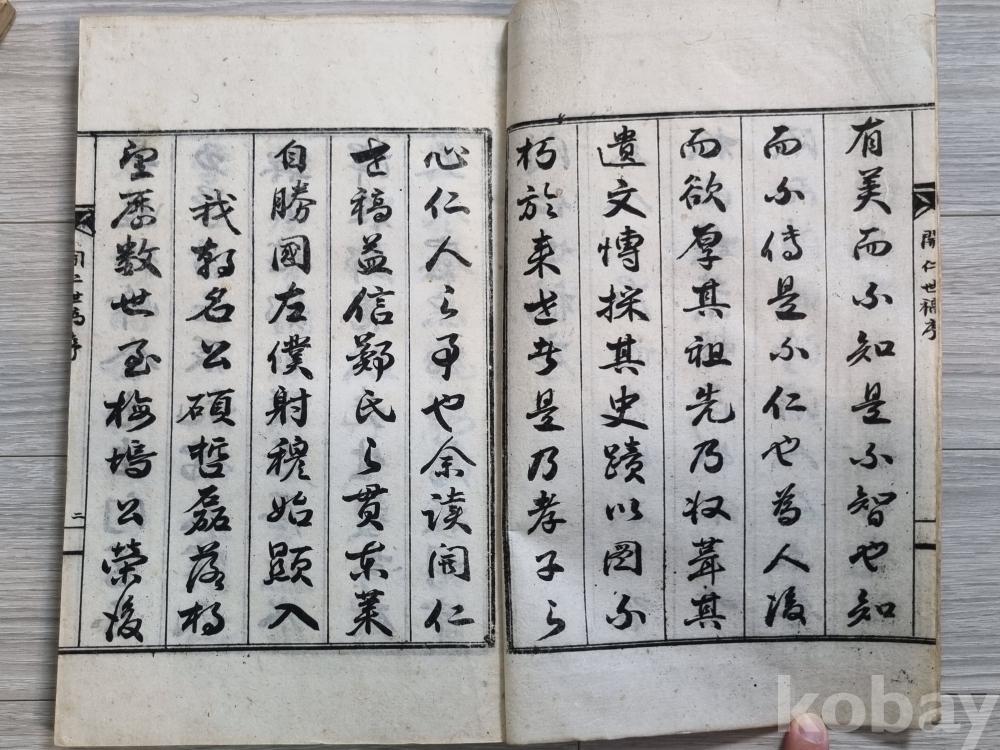 有美而不知是不智也知
而不傳是不仁也為人後
而欲厚其祖先乃收葺其
遺文博採其史蹟以圖不
朽於來世者是乃孝子之
心仁人之事也余讀開仁
世稿益信鄭氏之貫東萊
自勝國左僕射穆始顯入
我朝名公碩哲磊落相
望歷數世至梅塢公榮後
開仁世稿序
開仁世稿序
二
kobay